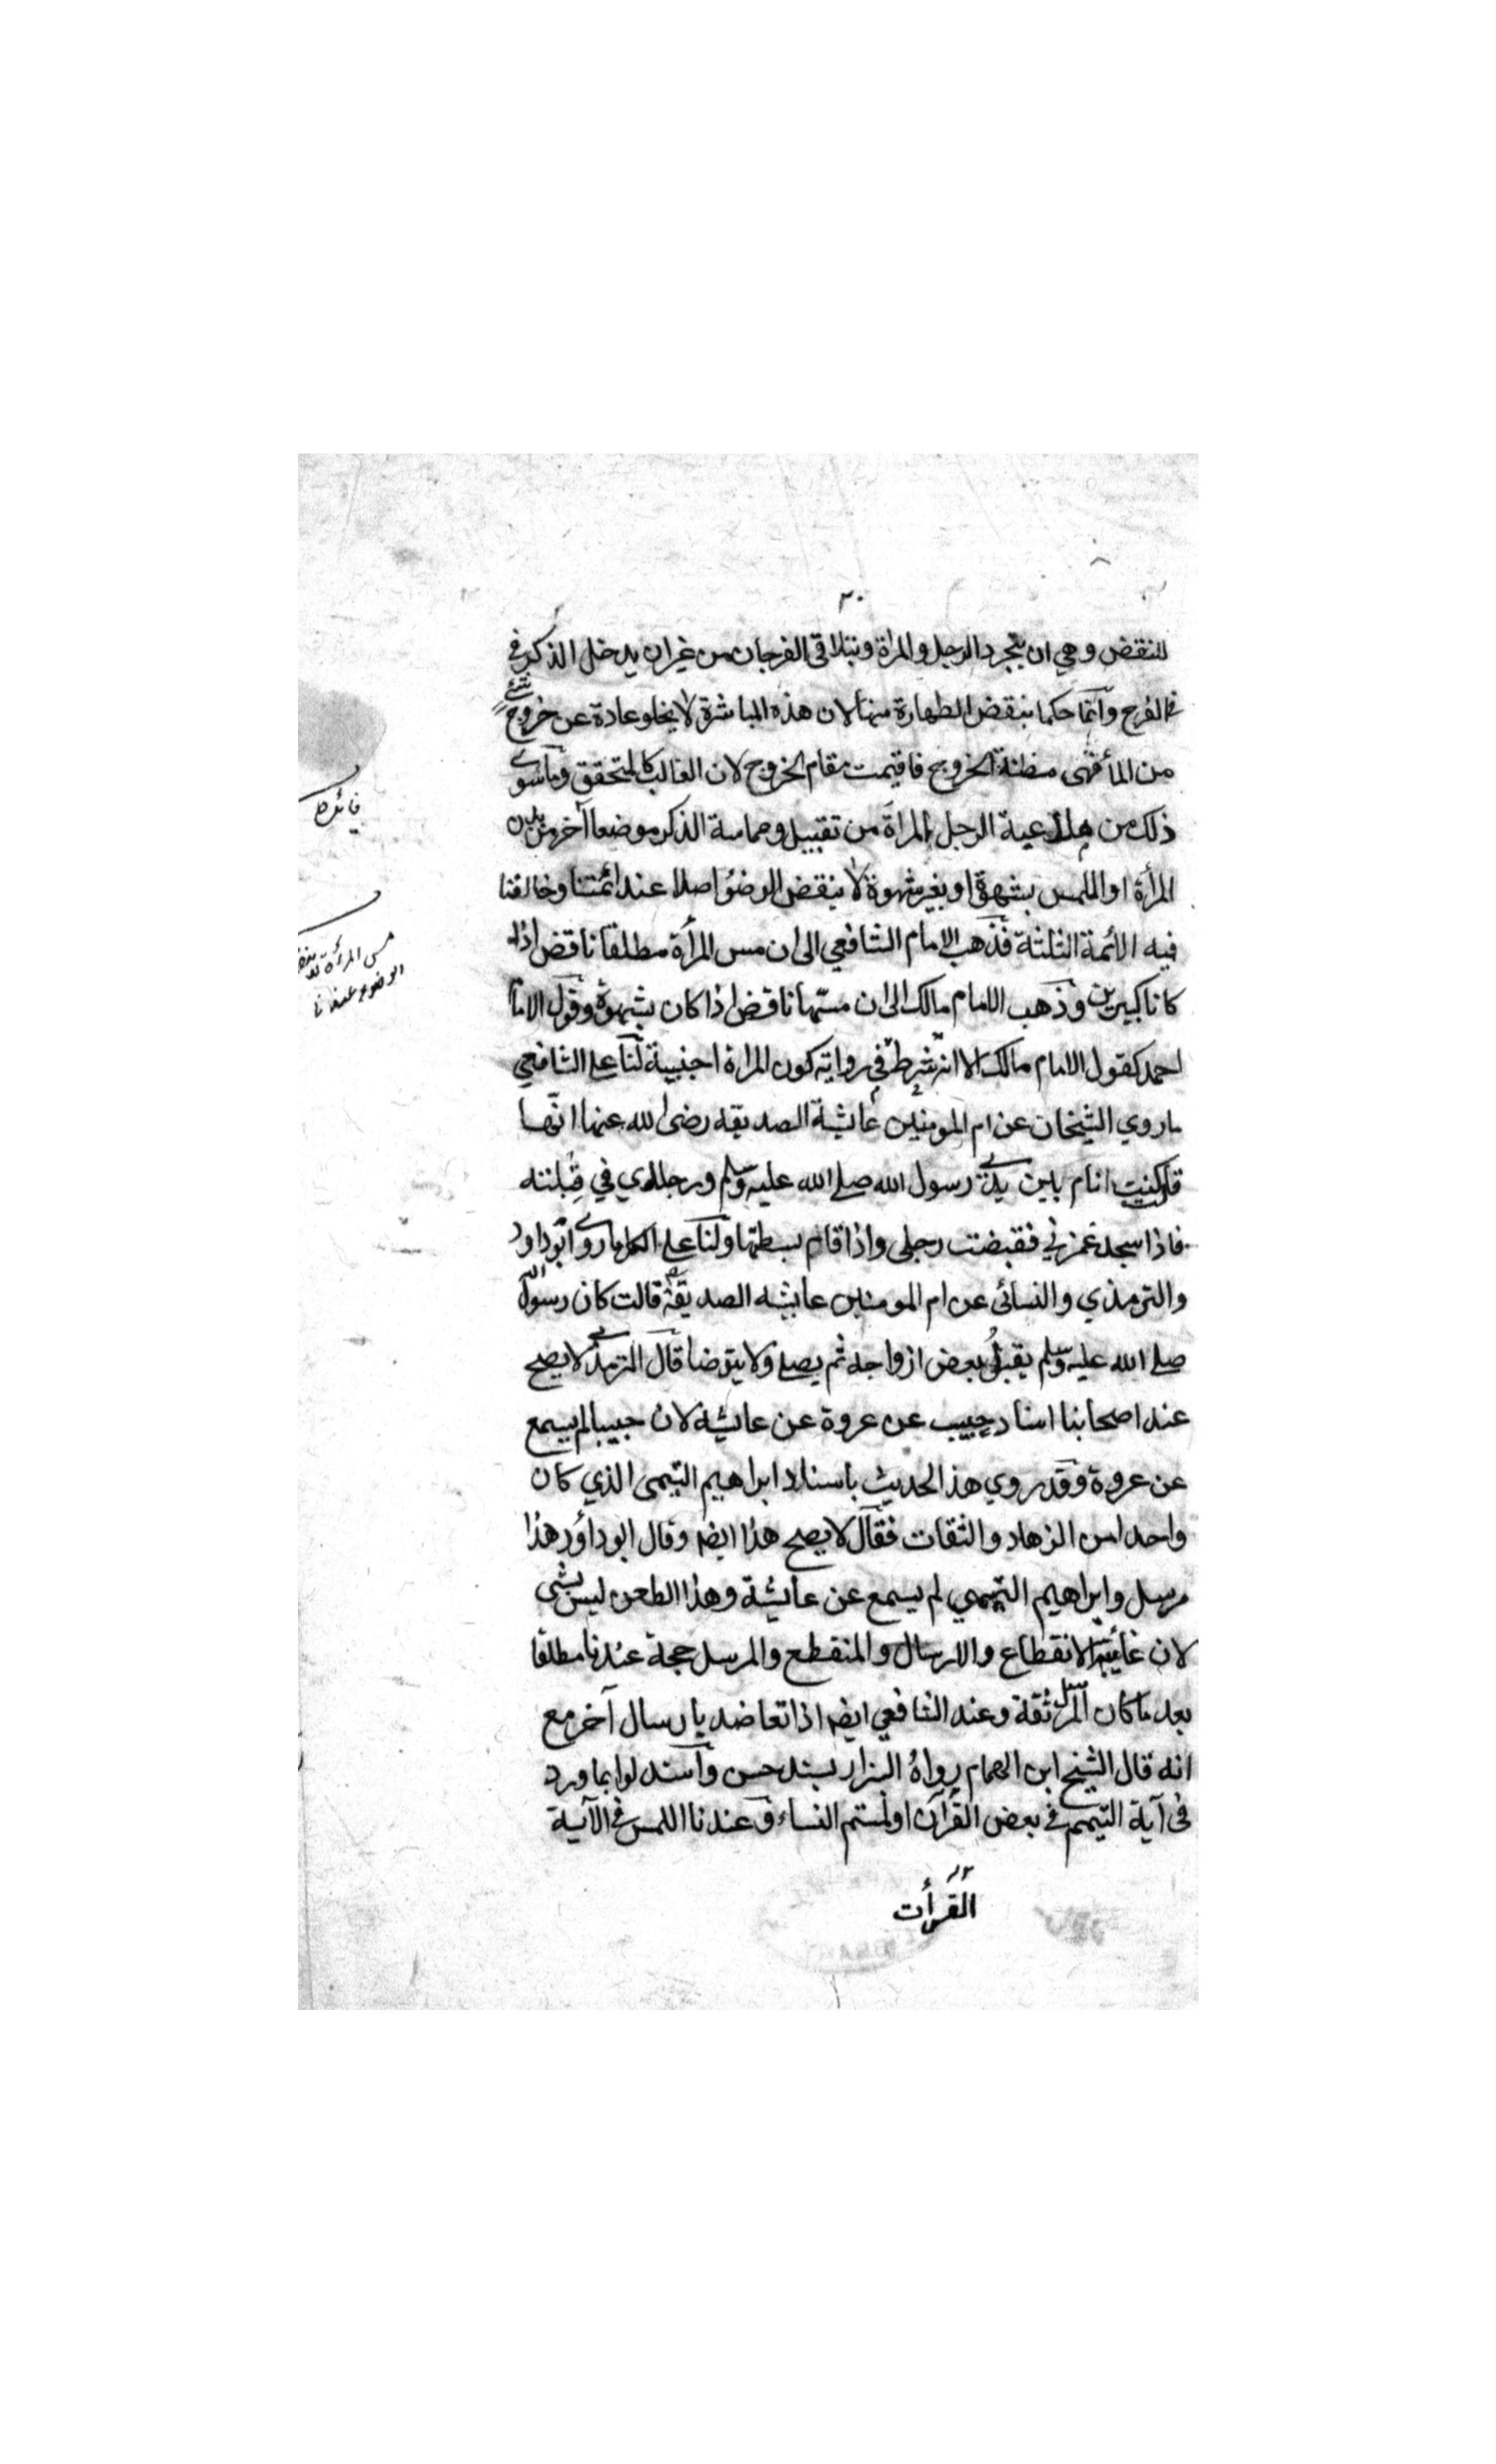 ٣٠
للنقض وهي ان يتجرد الرجل والمراة ويتلاقى الفرجان من غير ان يدخل الذكر في
في الفرج وانما حكما بنقض الطهارة منها لان هذه المباشرة لا يخلو عادة عن خروج شئ
من الماء فهى مظنة الخروج فاقيمت مقام الخروج لان الغالب كالمتحقق وما سوى
ذلك من ملاعبة الرجل المراة من تقبيل ومماسة الذكر موضعا آخر من بدن
المرأة او اللمس بشهوة او بغير شهوة لا ينقض الوضؤ اصلا عند ائمتنا وخالفنا
فيه الائمة الثلثة فذهب الامام الشافعي الى ان مس المرأة مطلقا ناقض اذا
كانا كبيرين وذهب الامام مالك الى ان مسها ناقض اذا كان بشهوة وقول الامام
احمد كقول الامام مالك الا انه شرط في رواية كون المراة اجنبية لنا على الشافعي
ما روي الشيخان عن ام المومنين عائشة الصديقه رضى الله عنها انها
قالت كنت انام بين يدي رسول الله صلى الله عليه وسلم ورجلاي في قبلته
فاذا سجد غمزني فقبضت رجلى واذا قام بسطتها ولنا على الكل ما روى ابو داود
والترمذي والنسائى عن ام المومنين عايشه الصديقة قالت كان رسول الله
صلى الله عليه وسلم يقبل بعض ازواجه ثم يصلى ولا يتوضا قال الترمذي لا يصح
عند اصحابنا اسناد حبيب عن عروة عن عايشه لان حبيبا لم يسمع
عن عروة وقد روي هذ الحديث باسناد ابراهيم التيمى الذي كان
واحدا من الزهاد والثقات فقال لا يصح هذا ايضا وقال ابو داؤد هذا
مرسل وابراهيم التيمي لم يسمع عن عائشة وهذا الطعن ليس بشى
لان غايته الانقطاع والارسال والمنقطع والمرسل حجة عندنا مطلقا
بعد ما كان المرسل ثقة وعند الشافعي ايضا اذا تعاضد بارسال آخر مع
انه قال الشيخ ابن الهمام رواه البزار بسند حسن واستدلوا بما ورد
فى آية التيمم في بعض القرآن او لمستم النساء وعندنا اللمس في الآية
القرأت
فائدة
مس المرأة
الوضوء عندنا